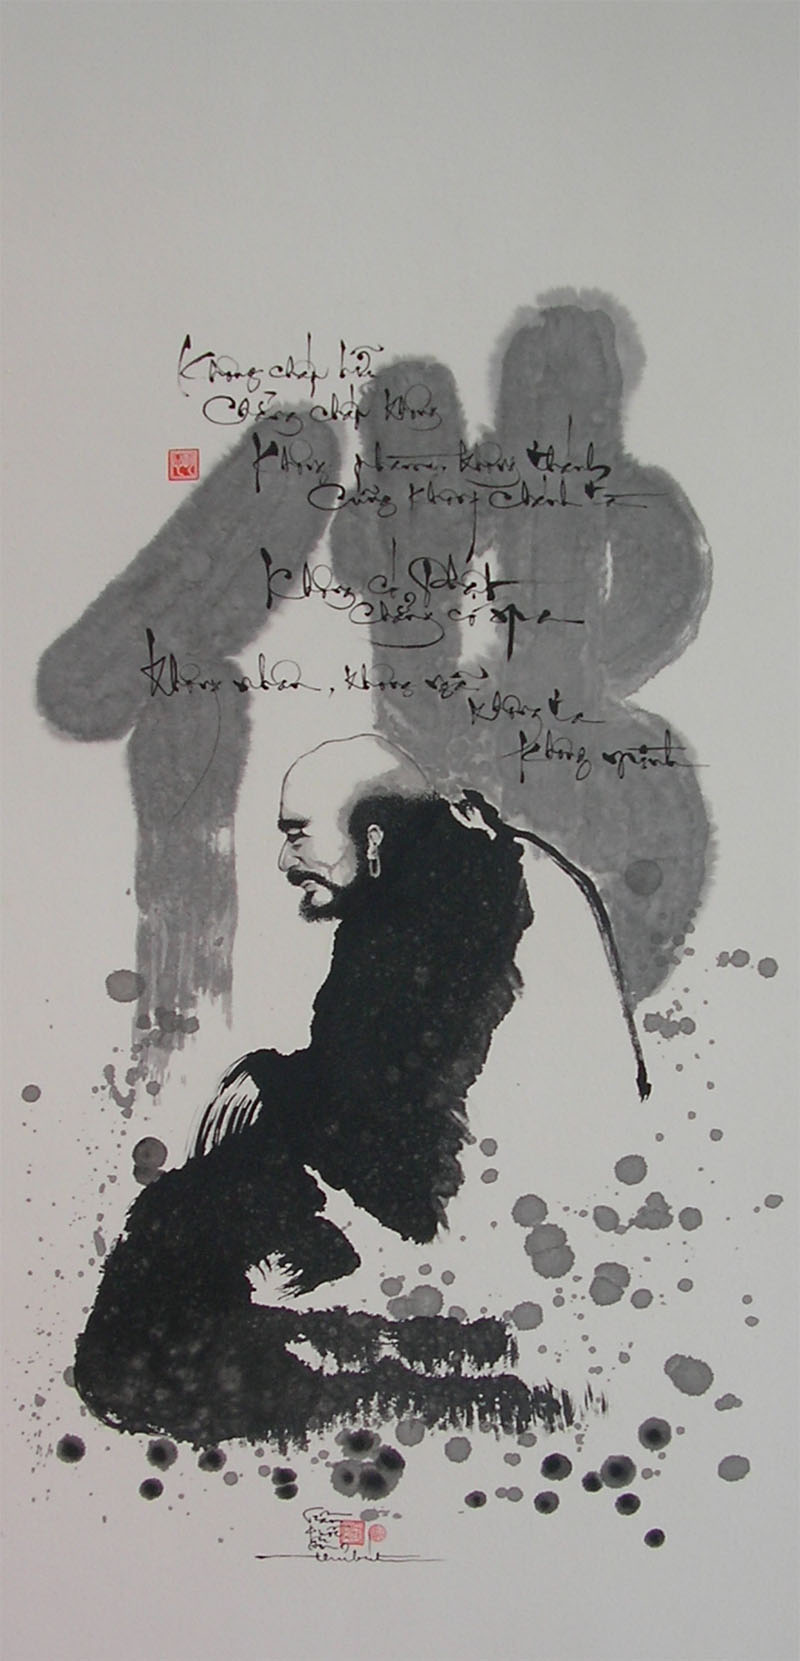 Không chấp hữu
Chẳng chấp không
Không phàm, không thánh
Cũng không chánh tà
Không có Phật
Chẳng có ma
Không nhân, không ngã
Không ta
Không mình